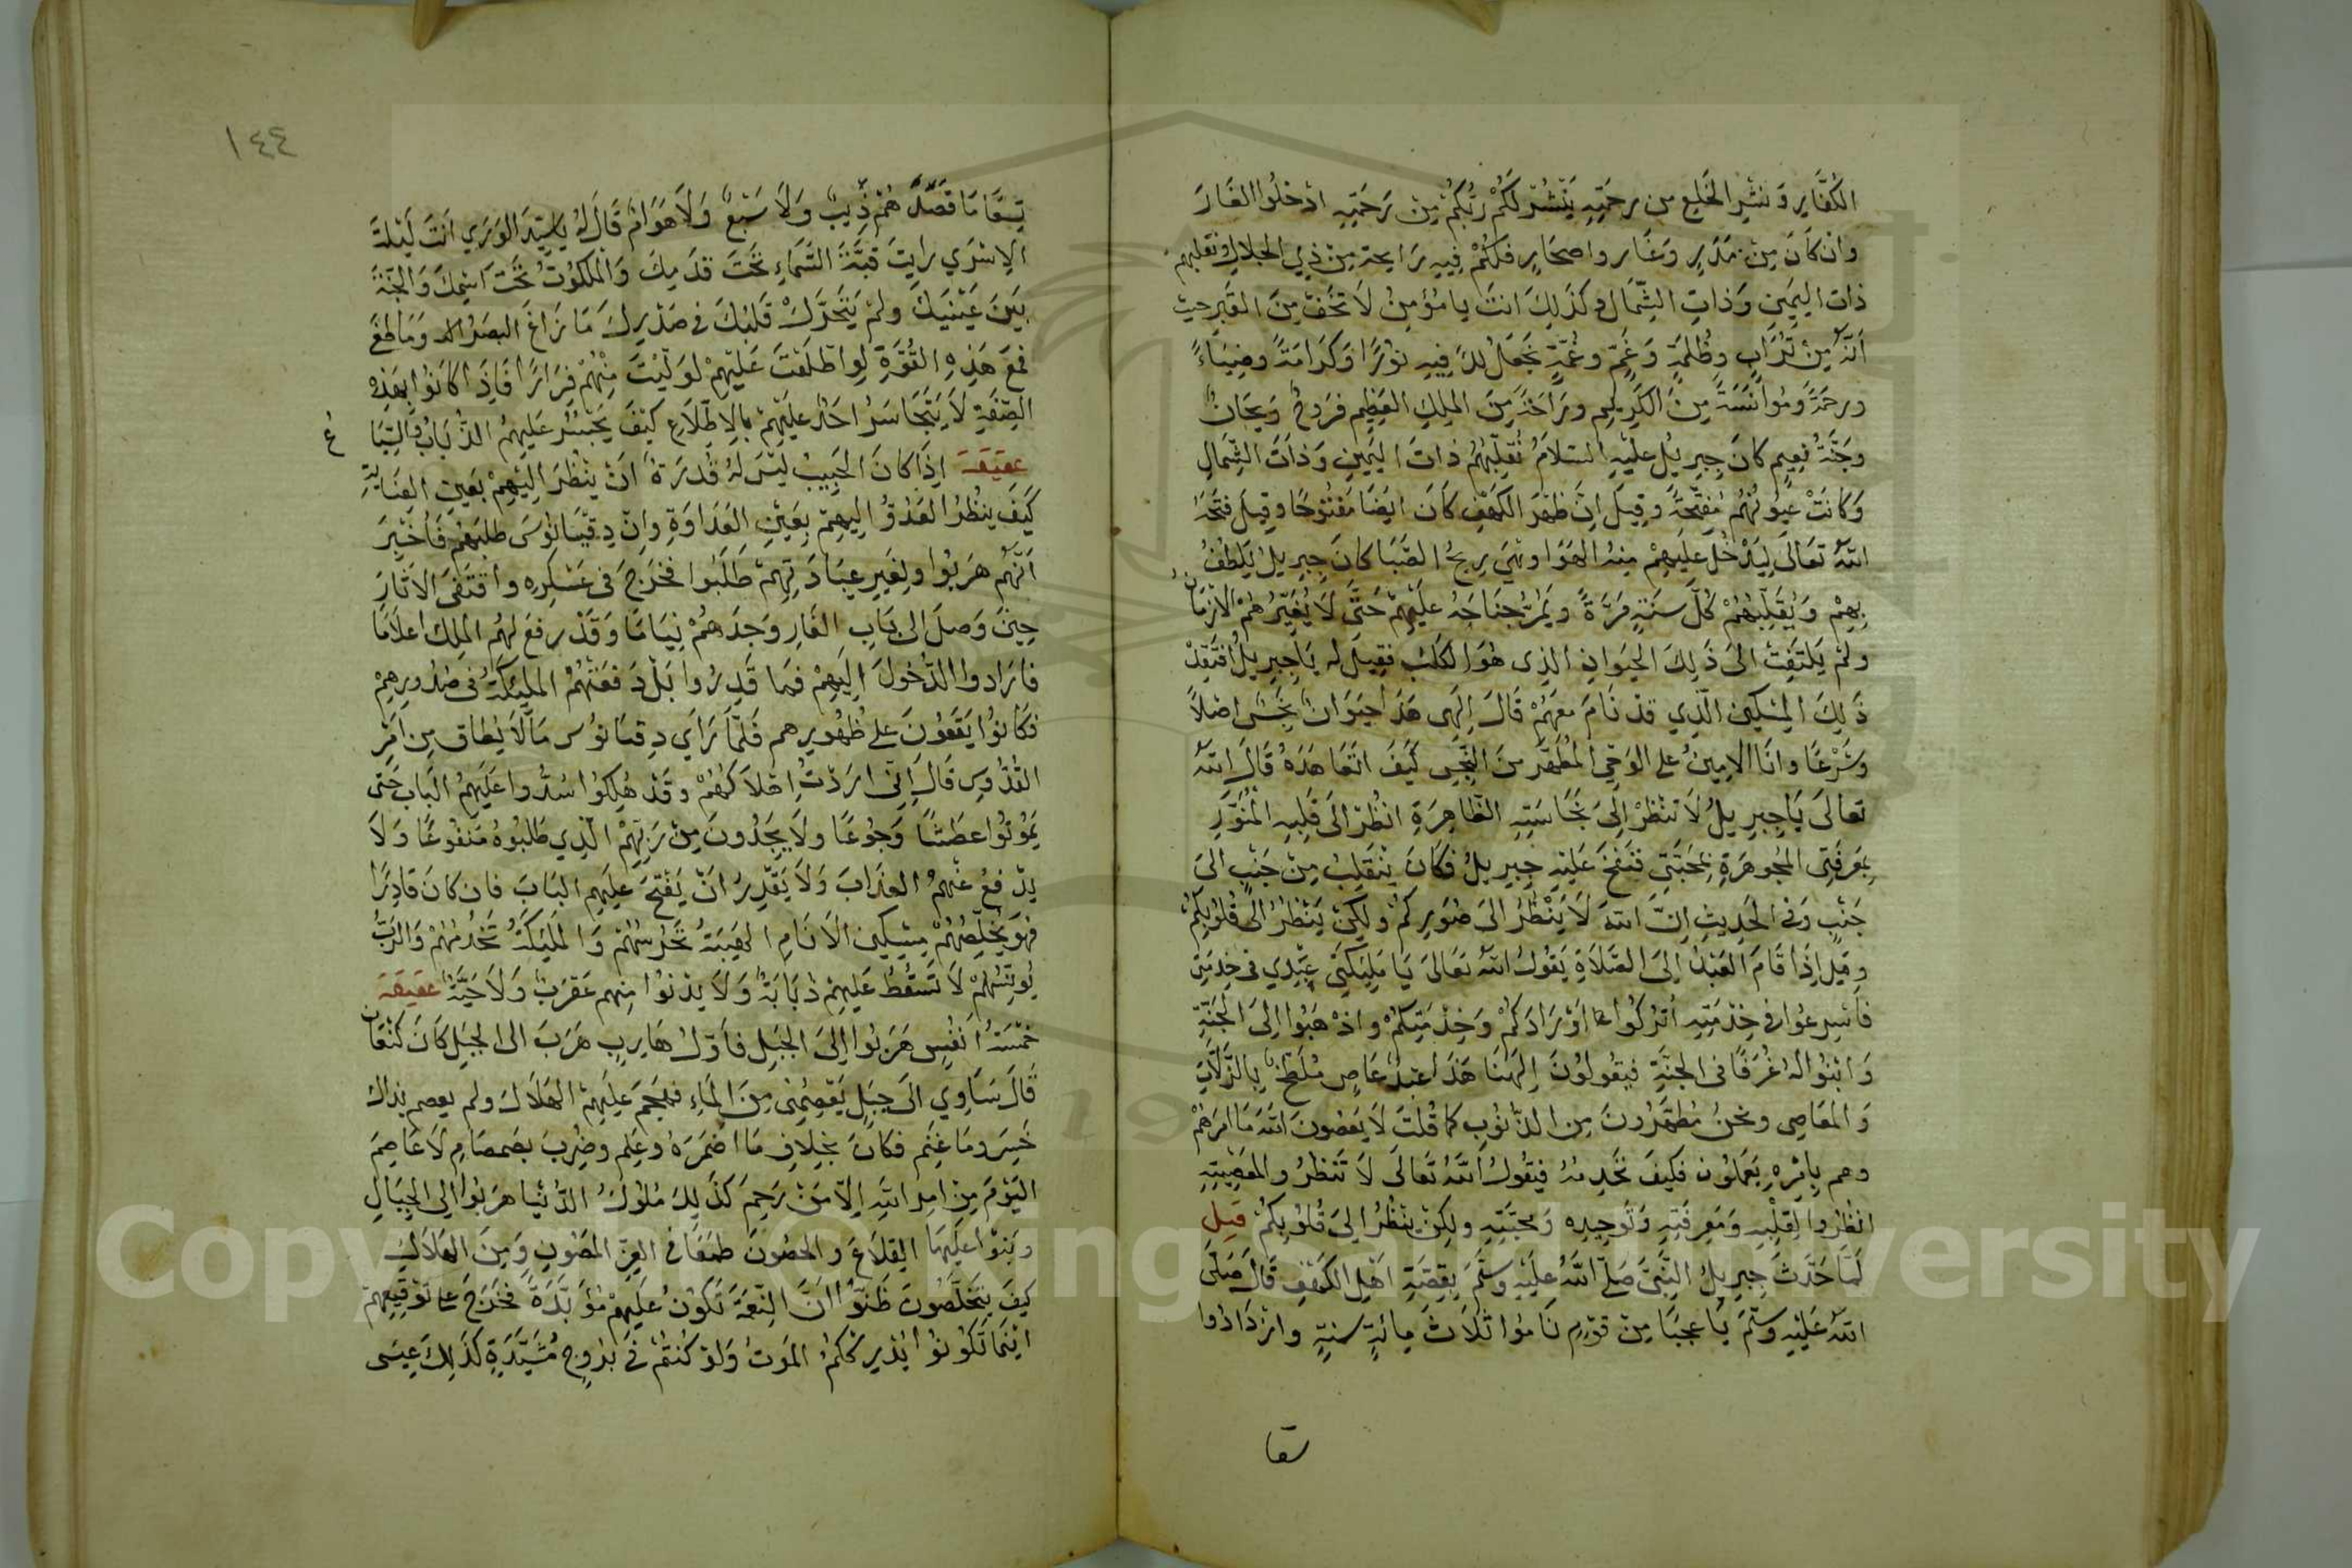 الكُفَّارِ وَنَشْرِ الخَلِيعِ من رحمَتِهِ يَنْشُرْ لَكُمْ رَبُّكُمْ مِنْ رَحْمَتِهِ ادْخُلُوا الغَارَ
وان كَانَ مِنْ مَدَرٍ وَغَارٍ واحجَارٍ فلكُمْ فِيهِ رَايحة مِنْ ذِي الجلالِ ونقلبهم
ذات اليمَينِ وَذاتِ الشِّمَالِ وكَذَلِكَ انتَ يا مُؤمِنُ لَا تَخَفْ مِنَ القَبرِ حيث
اَنَّهُ مِنْ تُرَابٍ وظُلمَةٍ وَغَمٍّ وغُمَّةٍ نجعَلُ لكَ فِيهِ نوْرًا وَكَرَامَةً وضِيَاءً
ورحمَةً ومُوَانَسَةً مِنَ الكَرِيمِ ورَاحَةً مِنَ المِلِكِ العَظِيمِ فرَوحٌ وَرَيحَانٌ
وجَنَّةُ نعِيمٍ كانَ جِبرِيْل عليْهِ السّلامُ نُقلِّبهُمْ ذَاتَ اليَمِينِ وَذاَتَ الشِّمَالِ
وَكَانَتْ عيُونُهُمْ مُفَتّحَةً وقِيلَ انَّ ظهْرَ الكَهْفِ كَانَ ايضًا مَفتُوحًا وقِيلَ فتحَهُ
اللهُ تعَالَى لِيَدْخُلَ عَلَيهِمْ مِنهُ الهَوَا وهْيَ رِيحُ الصَّبَا كانَ جِبرِيلُ يَلطُفُ
بِهِمْ وَيُقَلِّبُهُمْ كُلَّ سَنَةٍ مَرَّةً ويَمُرُّ جنَاحَهُ عليْهِمْ حَتَّى لَا يُغَيِّرُهُمْ الازمَانُ
ولَمْ يَلتَفِتْ الىَ ذَلِكَ الحيَوانِ الذِى هُوَ الكَلبُ فقِيلَ له يَا جِبرِيلُ افتَقِدْ
ذَلِكَ المِسْكِين الّذِي قدْ نَامَ معَهُمْ قَالَ اِلَهِى هَذَا حيَوَانٌ نجَسٌ اصْلاً
وشَرْعًا وانَا الامِينُ على الوَحْيِ المُطَهَّرِ مِنَ النَّجَسِ كيَفَ اتَعَاهَدَهُ قَالَ اللهُ
تعَالَى يَا جِبرِيلُ لَا تنْظُرْ اِلىَ نجَاسَتِهِ الظَّاهِرَةِ انظُرْ الىَ قَلبِهِ المُنَوَّرِ
بِمَعرِفَتِى المُجَوهَرَةِ بمحَبَّتِى فنَفَخَ عَليْهِ جِبرِيلُ فكَانَ يَنْقَلِبُ مِنْ جَنْبٍ الىَ
جَنْبٍ وَفى الحَدِيثِ اِنَّ اللهَ لَا يَنْظُرُ الىَ صُوَرِكُمْ ولكِنْ يَنْظُرُ الىَ قُلُوبِكُمْ
وقِيلَ اِذَا قَامَ العَبْدُ الىَ الصَّلَاةِ يَقُولُ اللهُ تعَالىَ يَا مَلَيِكَتِى عَبْدِي فى خِدْمَتِى
فاسْرِعُوا فى خِدْمَتِهِ اُتْرُكُوا اوْرَادَكُمْ وَخِدْمَتِكُمْ واذْهَبُوا اِلىَ الجَنَّةِ
وَابْنُوا لَهُ غُرَفًا فى الجنَّةِ فيَقُولُونَ اِلَهَنَا هَذَا عَبْدٌ عَاصٍ مُلَطَّخٌ بالزَّلَّاتِ
وَالمَعَاصِى ونحنُ مُطَهَّرُونَ مِن الذُّنوُبِ كما قُلتَ لَا يَعْصُونَ اللهَ مَا امرَهُمْ
وهم بِامْرِهِ يَعمَلُونَ فكَيفَ نَخْدِمُهُ فيَقُولُ اللهُ تعَالَى لَا تَنظُرُوا لمعَصِيَتِهِ
انظُرُوا لِقَلْبِهِ وَمَعرِفَتِهِ وتَوحِيدِه وَمحبَّتِهِ ولكِنْ يَنْظُرُ اِلىَ قُلُوبِكُمْ قيل
لَمَّا حَدَّثَ جِبرِيلُ النَّبِيَّ صَلَّى اللهُ عليْهِ وسَلَّمَ بِقِصَّةِ اهْلِ الكَهْفِ قَالَ صَلَّى
اللهُ عَلَيْهِ وسَلَّمَ يَا عجَبًا مِنْ قوْمٍ نَامُوا ثَلَاثَ مِائَةٍ سِنينٍ وازْدَادُوا
تسعا
١٤٤
تِسعًا مَا قصَدَهُمْ ذِيبٌ وَلَا سَبُعٌ وَلَا هَوَامٌ قَالَ لهُ يا سَيّدَ الوَرَي انتَ لَيْلَةَ
الاِسْرَي رايتَ قُبَّةَ السَّمَاءِ تحتَ قدَمِكَ وَالملكوُتُ تحتَ اسْمِكَ وَالجَنَّةُ
بَيَنَ عَيْنَيكَ ولَمْ يَتَحرَّكْ قَلبُكَ فى صَدْرِكَ مَا زَاغَ البَصَرُ وَمَا طَغَى
فمعَ هَذِهِ القُوَّةِ لوِ اطّلَعْتَ عَليْهِمْ لَوَلَّيْتَ مِنْهُمْ فِرَارًا فَاِذَا كَانُوا بهَذِهِ
الصِّفَةِ لَا يَتَجَاسَرُ احَدٌ عليْهِمْ بالاِطّلَاعِ كَيْفَ يَجْسُرُ عَليهِمُ الذُّبَابُ وَالسِّبَاعُ
عقيقة اِذَا كانَ الحَبِيبُ ليْسَ لهُ قُدرَةٌ انْ ينْظُرَ اِليْهِمْ بعَينِ العِنَايَةِ
كيَفَ ينظُرُ العَدُوُّ اِليهِمْ بِعَيْنِ العَدَاوَةِ وانَّ دِقيَانُوسَ طلبَهُمْ فاُخْبِرَ
اَنَّهُمْ هَرَبُوا ولِغَيرِ عِبَادَتِهِمْ طَلَبُوا فخَرَجَ فى عَسْكِرِه واقْتَفَى الاَثَارَ
حِينَ وَصَلَ الى بَابِ الغَارِ وَجَدَهُمْ نِيَامًا وَقَدْ رفعَ لهُم المَلِك اعلَامًا
فارَادوا الدُّخُولَ اِليهِمْ فمَا قَدِرُوا بَلْ دَفعَتْهُمُ المليَكَةُ فى صُدُورِهِمْ
فكَانُوا يَقعُونَ على ظُهُورِهِم فَلَمَّا رَاي دِقيَانوُس مَالَا يُطاق مِن اَمْرِ
القُدُّوسِ قَالَ اِنِّى ارَدْتُ اِهْلَاكَهُمْ وقَدْ هَلَكُوا سُدُّوا عَليهِمُ البَاب حَتَّى
يَمُوتُوا عطَشًا وَجوُعًا ولَا يجِدُونَ مِنْ رَبِّهِمْ الّذِي طَلبُوهُ مَنفُوعًا وَلَا
يدْفعُ عنْهُمُ العذَابَ وَلَا يَقدِرُ انْ يَفتَحَ عليَهِم البَابَ فان كانَ قادِرًا
فهوَ يُخَلِّصُهُمْ مِسْكِين الانَامِ الهَيبَةُ تَحرُسُهُمْ وَالمَليَكَةُ تَخْدُمُهُمْ وَالرّبُّ
يُونِسُهُمْ لَا تَسقُطُ عَليْهِمْ ذُبَابَةٌ وَلَا يدْنُوا مِنهم عَقرَبٌ وَلَا حَيَّةٌ عقيقة
خمْسَةُ اَنفُسٍ هَرَبُوا اِلىَ الجبَلِ فاوّلُ هَارِبٍ هَرَبَ الى الجبَلِ كَانَ كَنْعَان
قَالَ سَاَوِي الىَ جبَلٍ يَعْصِمُنِى مِنَ المَاءِ فهَجَمَ عَليهِمْ الهَلَاكَ ولم يعصم بذاك
خَسِرَ ومَا غَنِمَ فكانَ بخِلافِ مَا اضمَرَهُ وعَلِمَ وضُرِبَ بصَمصَامِ لَا عَاصِمَ
اليَوْمَ مِنْ امرِ اللهِ اِلّا مَنْ رَحِمَ كذَلِكَ مُلوُكُ الدُّنْيَا هرَبُوا الى الجبَالِ
وبَنوْا عَليهَا القِلَاعَ والحصُونَ طمَعًا فى العِزِّ المَصُونِ وَمِنَ الهَلَاكِ
كيَفَ يتَخَلَّصُونَ ظَنُّوا اَنَّ النِعْمَةَ تَكُونُ عَليهِمْ مُؤبَّدَةً فخَرَجَ على توْقِيعِهِمْ
ايْنَمَا تَكُونُوا يُدْرِكْكُمُ المَوتُ وَلَوْ كنتمْ فى بُرُوجٍ مُشَيَّدَةٍ كَذَلِكَ عِيسَى
Copyright © King Saud University